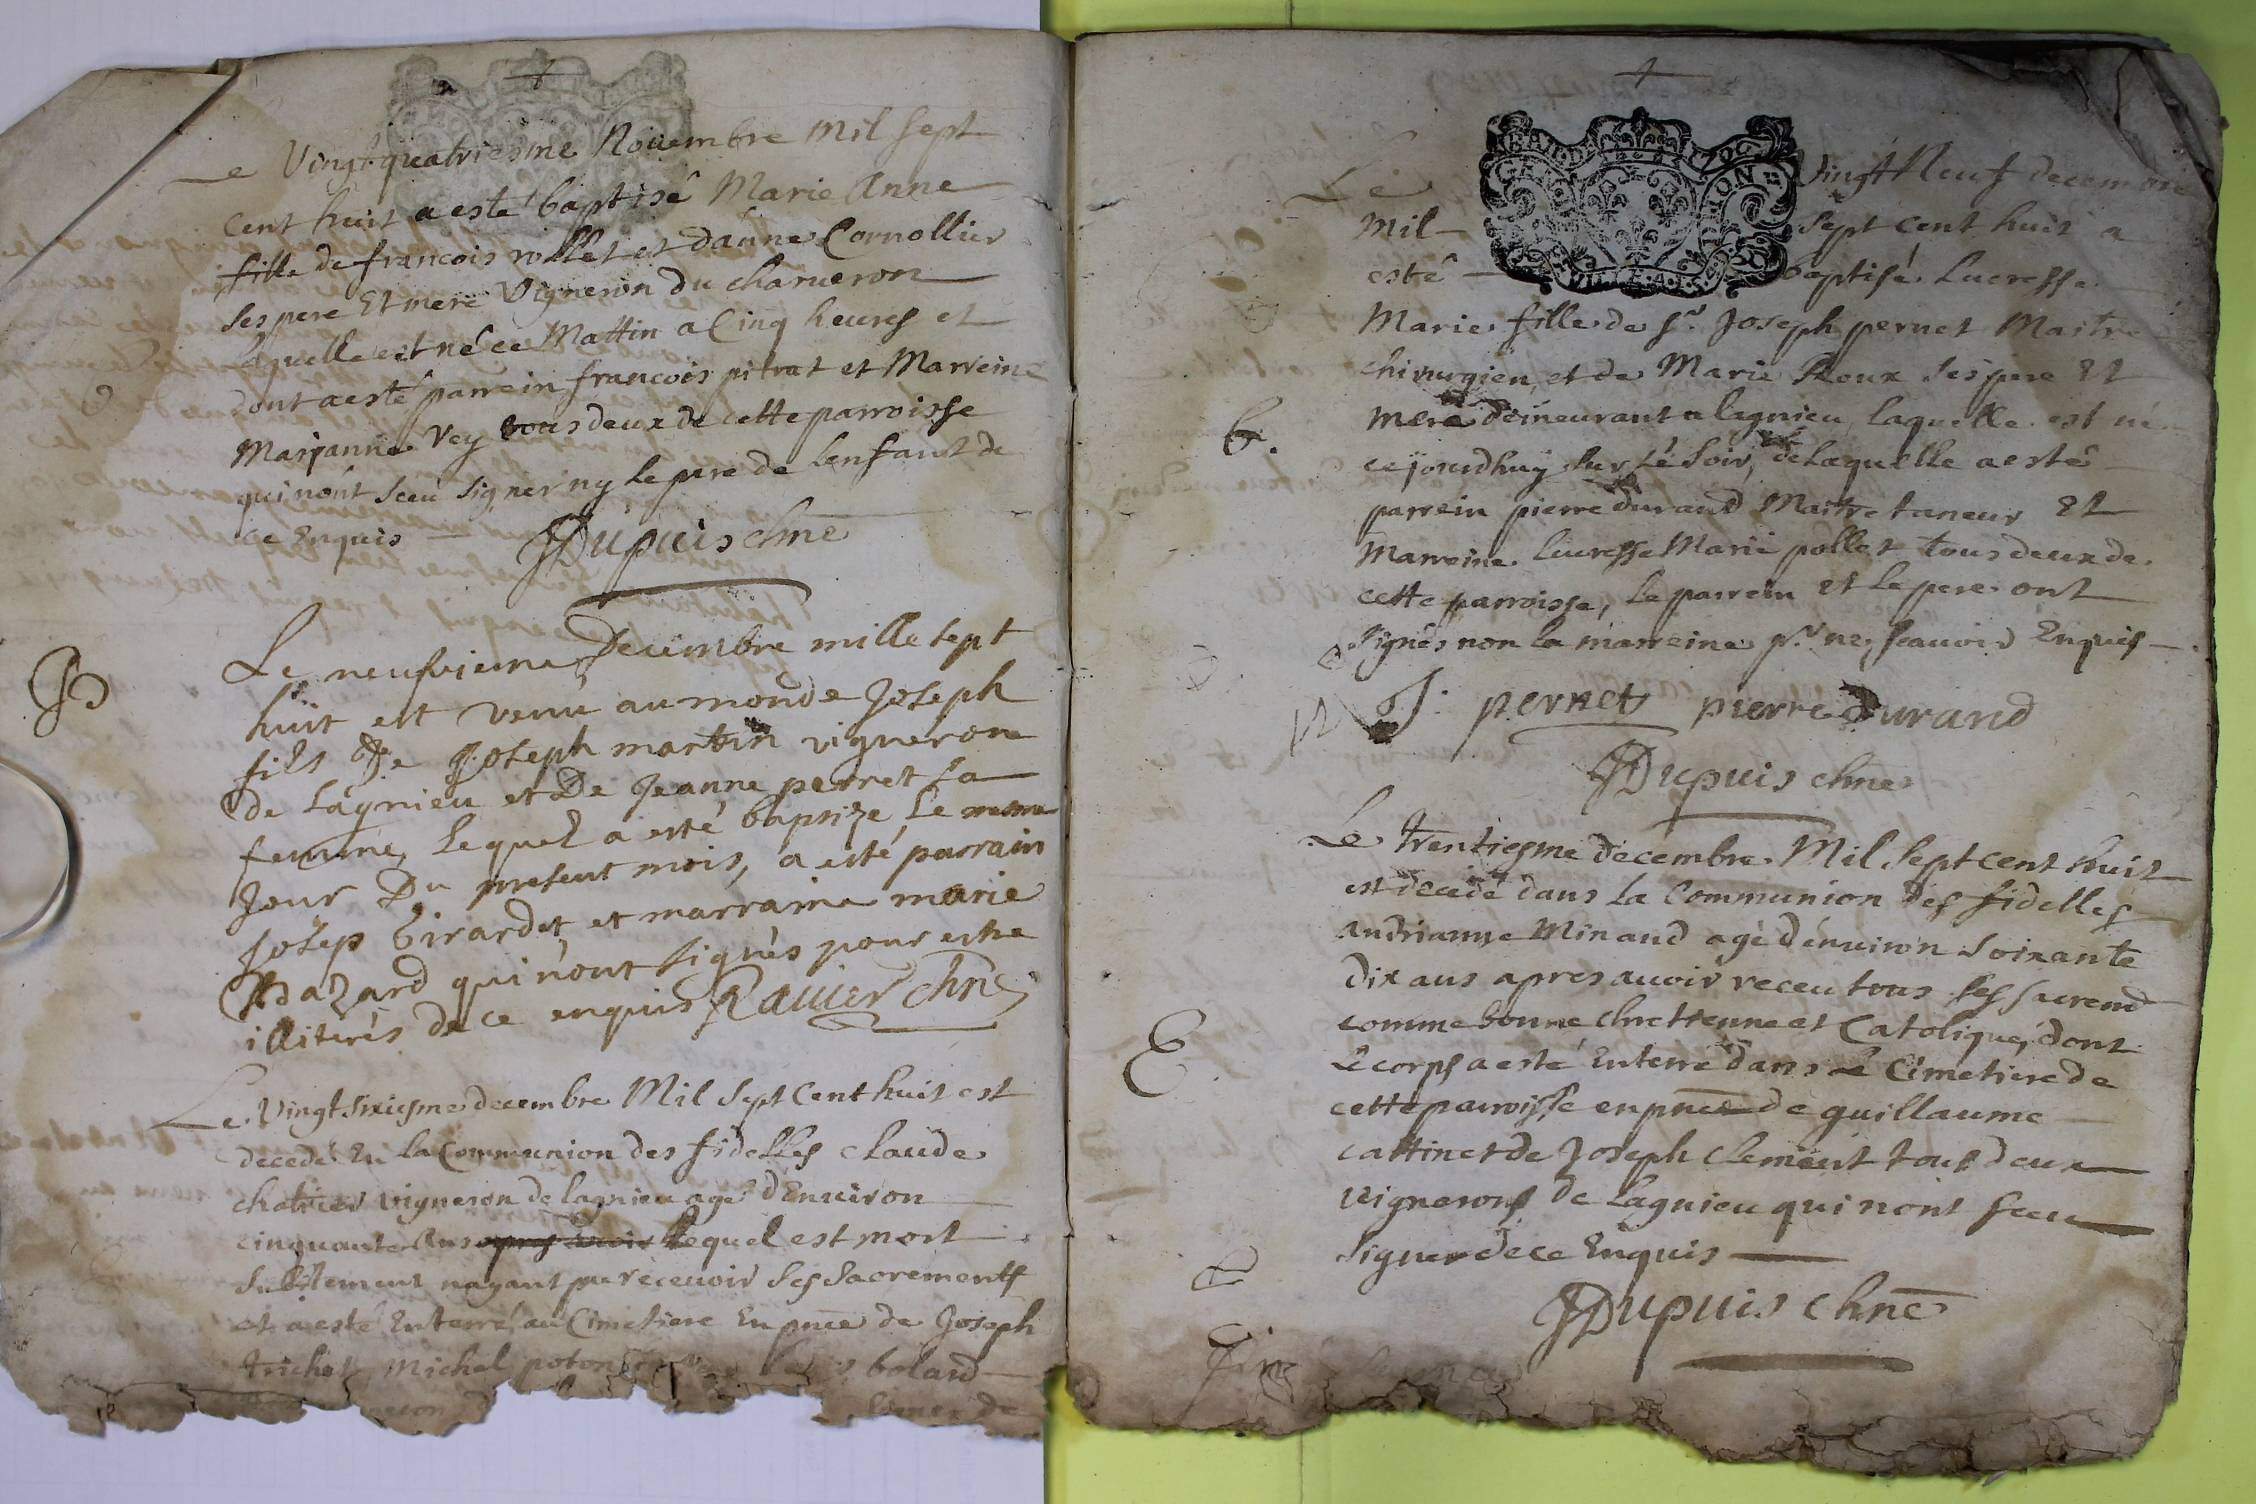 Le Vingt quatriesme Nouembre Mil sept
cent huit a esté baptisé Marie Anne
fille de francois rollet et d'anne Cornollier
ses pere Et mere Vigneron du charueron
laquelle est né ce Mattin a Cinq heures et
dont a esté parrein francois pitrat et Marreine
Marianne Vey tous deux de cette parroisse
qui n'ont sceu signer ny le pere de lenfant de
ce Enquis
Dupuis chne
B
Le neufvieme Decembre mille sept
huit est venu au monde Joseph
fils de Joseph martin vigneron
de Lagnieu et De Jeanne perret sa
femme, Lequel a esté baptize Le mesme
Jour Du present mois, a esté parrain
Josep Girardet et marraine marie
Adazard qui n'ont signés pour estre
illiterés de ce enquis Rauier chne
Le Vingt sixiesme decembre Mil sept Cent huit est
decedé En la Communion des fidelles claude
vigneron de lagnieu agé d'Enuiron
cinquante Ans apres auoir lequel est mort
subitement nayant pu receuoir ses Sacrements
et a esté Enterré au Cimetiere En pnce de Joseph
trichet Michel boland
de
Le Vingt Neuf decembre
Mil sept cent huit a
esté baptisé Lucresse
Marie fille de Sr. Joseph pernet Maitre
chirurgien et de Marie Roux ses pere Et
mere demeurant a lagnieu laquelle est né
ce jourdhuy sur Lé Soir, de Laquelle a esté
G.
parrein pierre durand Maitre taneur Et
Marreine lucresse Marie pollet tous deux de
cette parroisse, le parrein et le pere ont
signés non la marreine pr ne scauoir Enquis
J. pernet pierre durand
Dupuis chne
Le trentiesme decembre Mil sept cent huit
est decedé dans la Communion des fidelles
andrianne Minand agé d'enuiron soixante
dix ans apres auoir receu tous ses sacremt
comme bonne chrettienne et Catolique, dont
E.
Le corps a esté Enterré dans le Cimetiere de
cette parroisse en pnce de guillaume
cattin et de Joseph Clement tous deux
vignerons de Lagnieu qui nont sceu
signer de ce Enquis
Dupuis chne